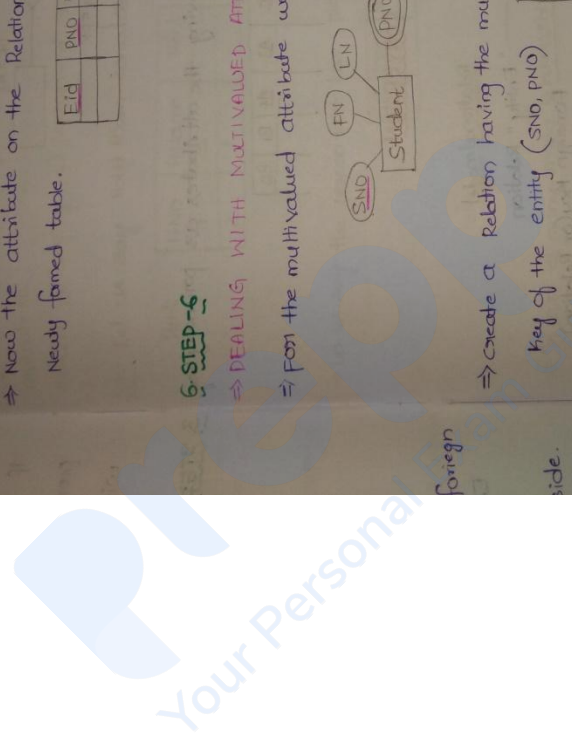 ⇒ Now the attribute on the Relation
Newly formed table.
Eid PNO
6. STEP-6
⇒ DEALING WITH MULTIVALUED AT
⇒ For the multivalued attribute w
SNO FN LN PNO
Student
⇒ Create a Relation having the mu
Key of the entity (SNO, PNO)
foriegn
side.
Prepp
Your Personal Exam